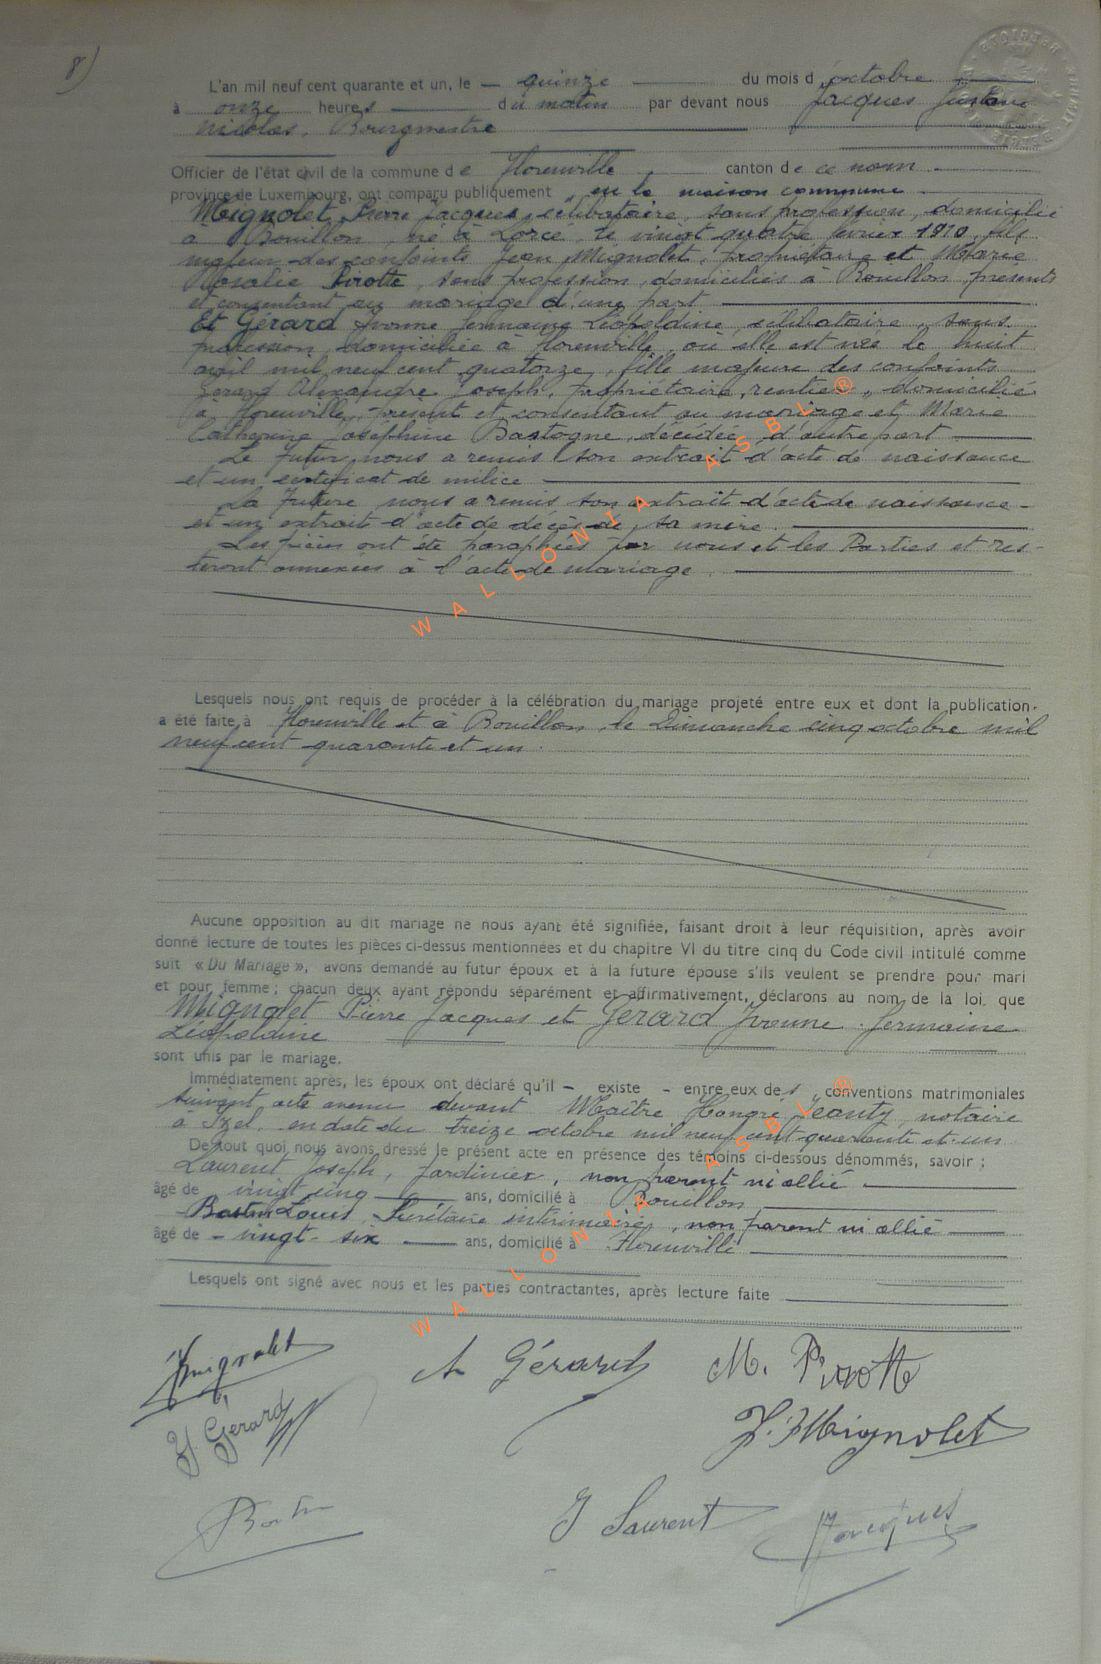 8)
L'an mil neuf cent quarante et un, le – quinze du mois d'octobre
à onze heures du matin par devant nous Jacques Gustave
Nicolas, Bourgmestre
Officier de l'état civil de la commune de Florenville canton de ce nom
province de Luxembourg, ont comparu publiquement en la maison commune
Mignolet Pierre Jacques, célibataire, sans profession, domicilié
à Bouillon, né à Lorcé, le vingt quatre février 1910, fils
majeur des conjoints Jean Mignolet, propriétaire et Marie
Rosalie Pirotte, sans profession, domiciliés à Bouillon, présents
et consentant au mariage d'une part
Et Gérard Yvonne Germaine Léopoldine, célibataire, sans
profession, domiciliée à Florenville, où elle est née le huit
avril mil neuf cent quatorze, fille majeure des conjoints
Gérard Alexandre Joseph, propriétaire, rentier, domicilié
à Florenville, présent et consentant au mariage et Marie
Catherine Joséphine Bastogne, décédée, d'autre part
Le futur nous a remis son extrait d'acte de naissance
et un certificat de milice
La future nous a remis son extrait d'acte de naissance -
et un extrait d'acte de décès de sa mère.
Les pièces ont été paraphées par nous et les Parties et res-
teront annexées à l'acte de mariage.
Lesquels nous ont requis de procéder à la célébration du mariage projeté entre eux et dont la publication
a été faite à Florenville et à Bouillon, le Dimanche cinq octobre mil
neuf cent quarante et un.
Aucune opposition au dit mariage ne nous ayant été signifiée, faisant droit à leur réquisition, après avoir
donné lecture de toutes les pièces ci-dessus mentionnées et du chapitre VI du titre cinq du Code civil intitulé comme
suit « Du Mariage », avons demandé au futur époux et à la future épouse s'ils veulent se prendre pour mari
et pour femme ; chacun deux ayant répondu séparément et affirmativement, déclarons au nom de la loi, que
Mignolet Pierre Jacques et Gérard Yvonne Germaine
Léopoldine
sont unis par le mariage.
Immédiatement après, les époux ont déclaré qu'il – existe – entre eux des conventions matrimoniales
suivant acte avenu devant Maître Hongré Jeanty, notaire
à Izel, en date du treize octobre mil neuf cent quarante et un
De tout quoi nous avons dressé le présent acte en présence des témoins ci-dessous dénommés, savoir ;
Laurent Joseph, Jardinier, non parent ni allié
âgé de vingt cinq ans, domicilié à Bouillon
Bastin Louis, Secrétaire intérimaire, non parent ni allié
âgé de – vingt-six ans, domicilié à Florenville
Lesquels ont signé avec nous et les parties contractantes, après lecture faite
Mignolet A Gérard M. Pirotte
Y. Gérard J. Mignolet
Bastin J Laurent Jacques
WALLONIA ASBL ®
WALLONIA ASBL ®